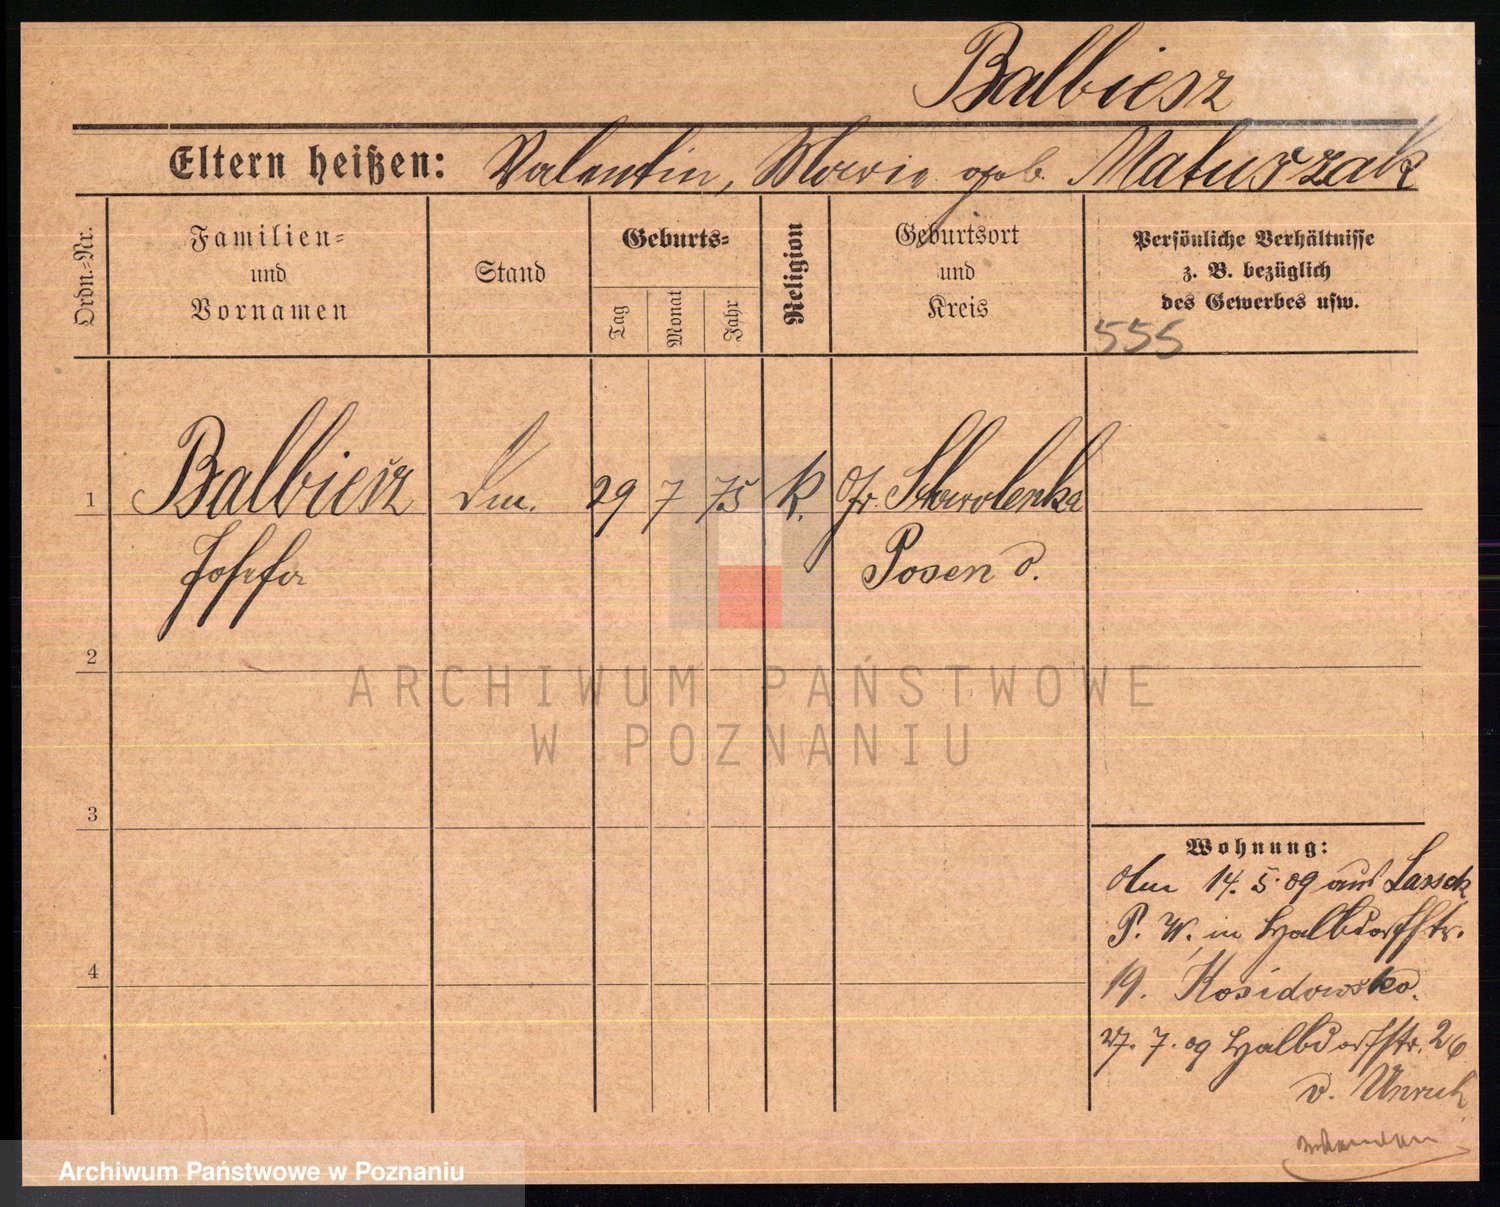 Balbiesz
Eltern heißen: Valentin, Marie geb. Maturzak
Ordn.-Nr.
Familien-
und
Vornamen
Stand
Geburts-
Tag
Monat
Jahr
Religion
Geburtsort
und
Kreis
Persönliche Verhältnisse
z. B. bezüglich
des Gewerbes usw.
555
1 Balbiesz Dm. 29 7 75 K. Gr. Starolenka
Josefa Posen O.
2
3
4
Wohnung:
Am 14. 5. 09 aus Lassek
P. W. in Halbdorfstr.
19. Kosidowska.
27. 7. 09 Halbdorfstr. 26
v. Unruh
ARCHIWUM PAŃSTWOWE
W POZNANIU
Archiwum Państwowe w Poznaniu